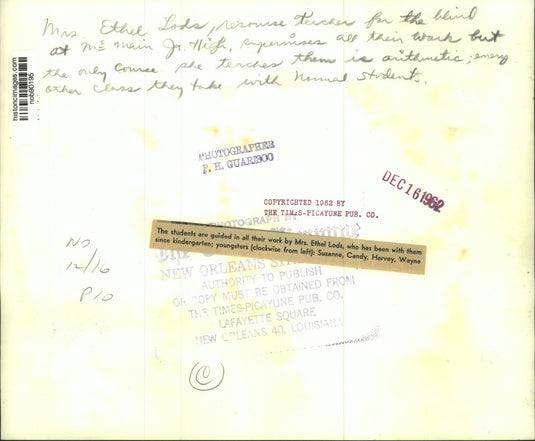 Mrs. Ethel Lods, resourse teacher for the blind
at Mc Main Jr. High, supervises all their work but
the only course she teaches them is arithmetic; every
other class they take with normal students.
historicimages.com
nob90195
PHOTOGRAPHER
P. H. GUARISCO
DEC 16 1962
COPYRIGHTED 1962 BY
THE TIMES-PICAYUNE PUB. CO.
PHOTOGRAPH BY
The students are guided in all their work by Mrs. Ethel Lods, who has been with them
since kindergarten; youngsters (clockwise from left): Suzanne, Candy, Harvey, Wayne
NEW ORLEANS
AUTHORITY TO PUBLISH
OR COPY MUST BE OBTAINED FROM
THE TIMES-PICAYUNE PUB. CO.
LAFAYETTE SQUARE
NEW ORLEANS 40, LOUISIANA
NS
12/16
P10
C